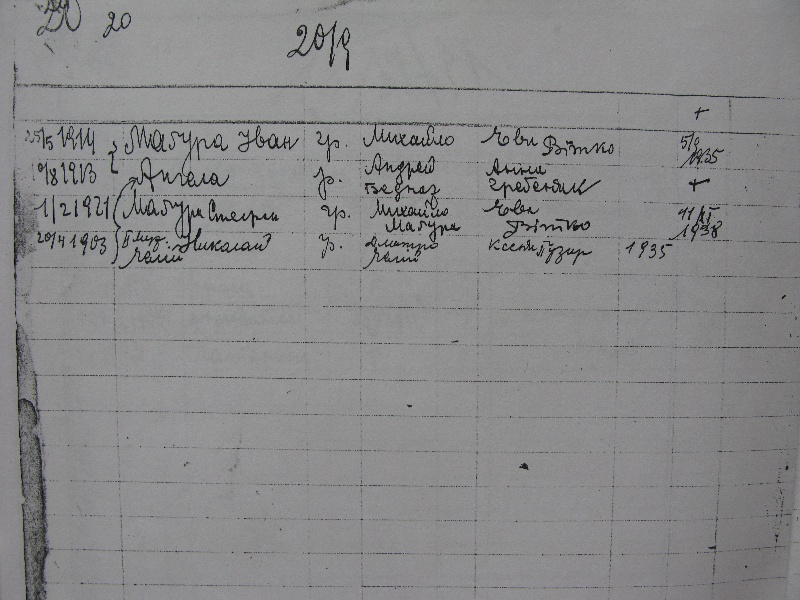 20
20/9
+
25/5 1914 Мабура Иван гр. Михайло Еви Вітко 5/9 1935
9/8 1913 Ангела гр. Андрей Беднаг Анна Гребеняк +
1/2 1921 Мабура Стефан гр. Михайло Мабура Еви Вітко 11/VI 1938
20/4 1903 Николай гр. Дмитро Ксеня Пузар 1935